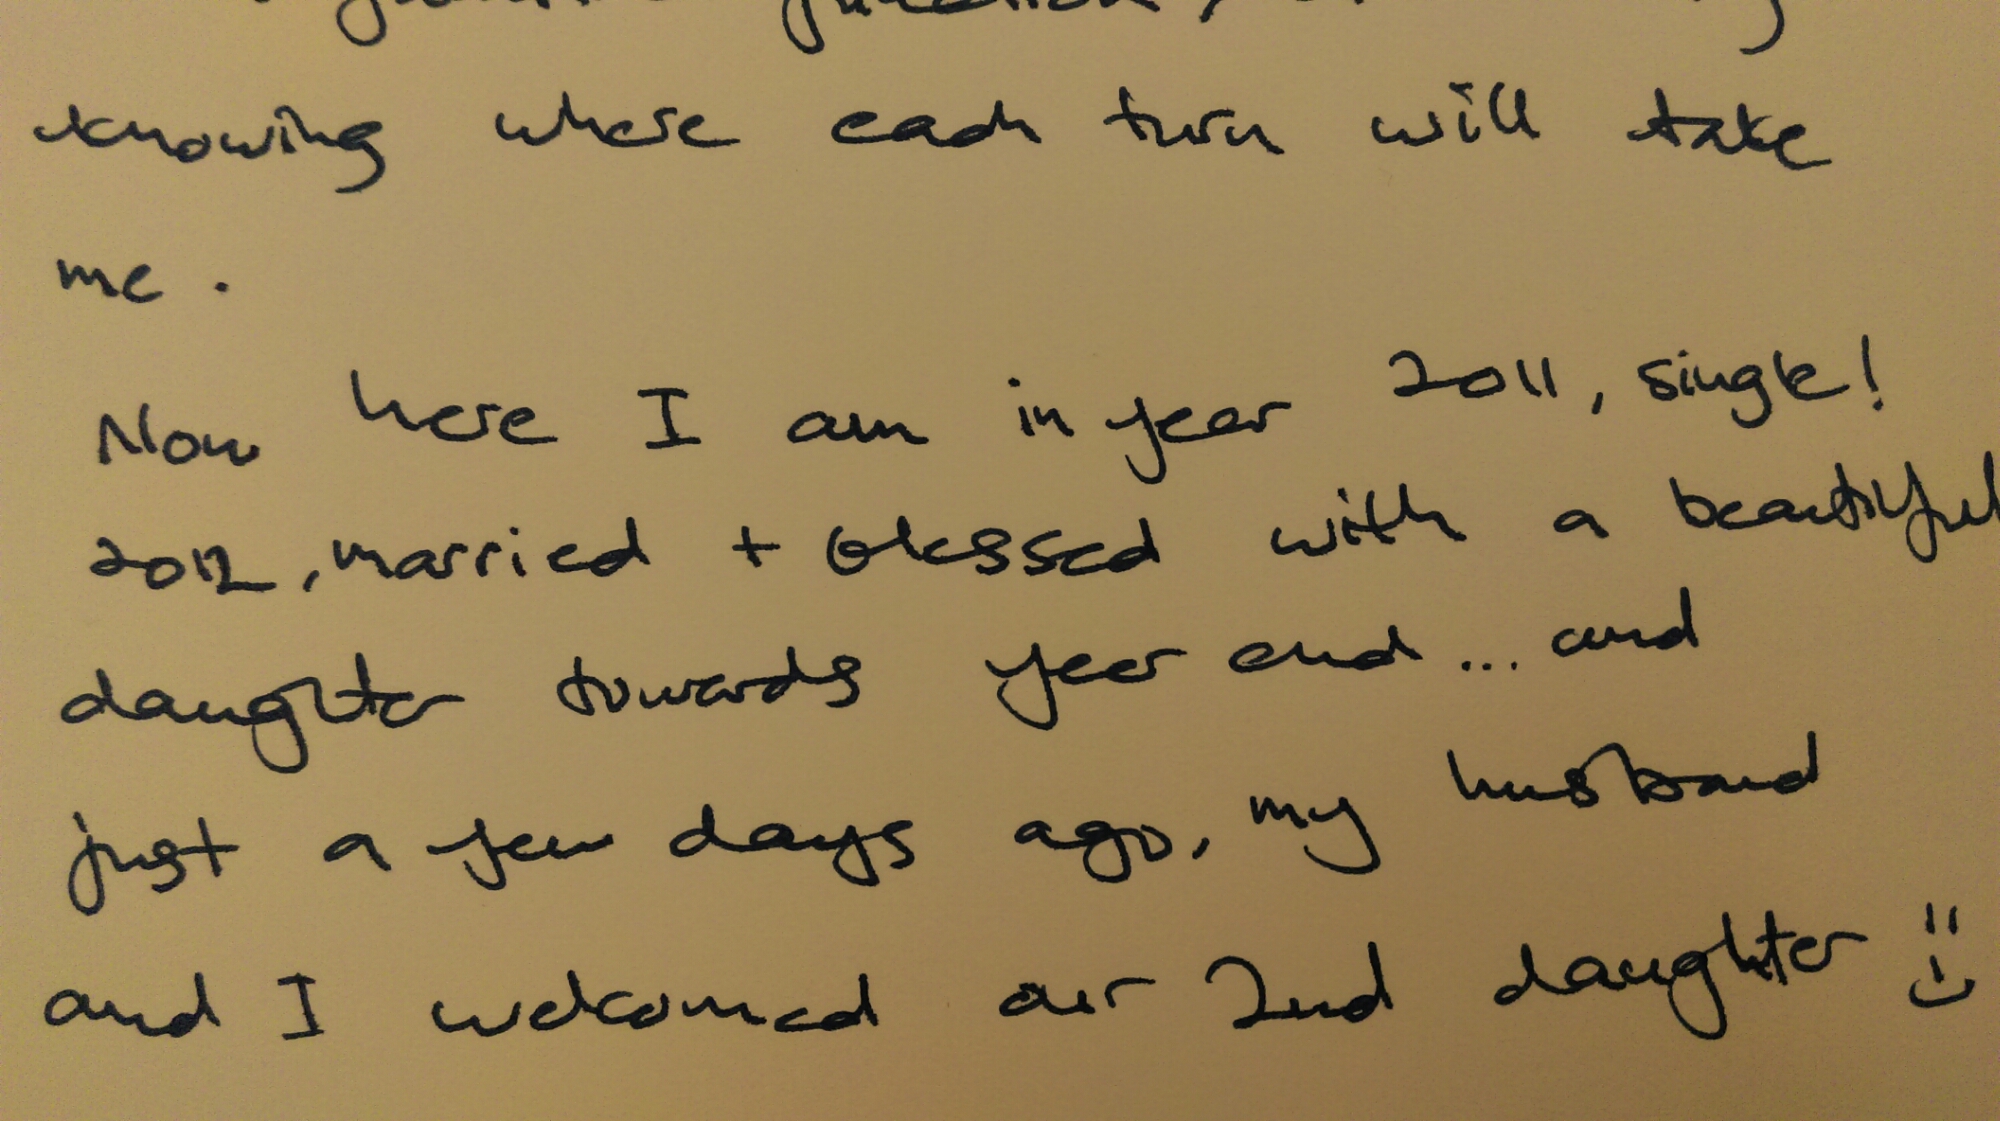 knowing where each turn will take
me.
Now here I am in year 2011, single!
2012, married + blessed with a beautiful
daughter towards year end... and
just a few days ago, my husband
and I welcomed our 2nd daughter :)